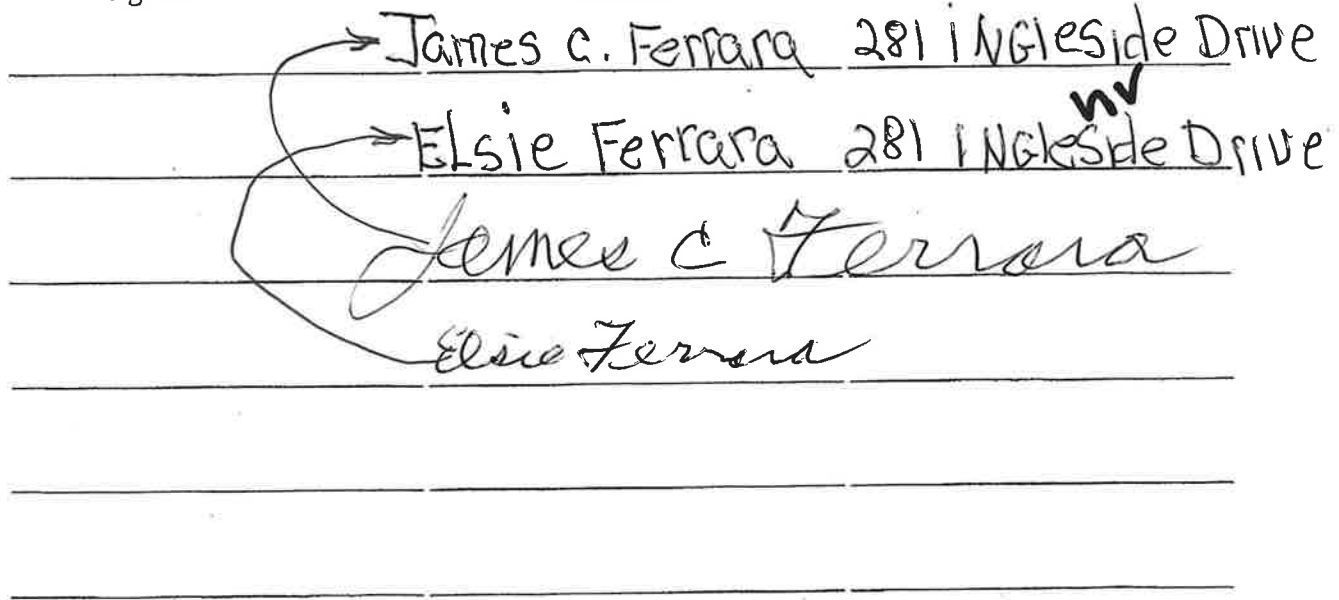 James C. Ferrara 281 iNGleside Drive
nr
ELsie Ferrara 281 iNGleside Drive
James C Ferrara
Elsie Ferrara